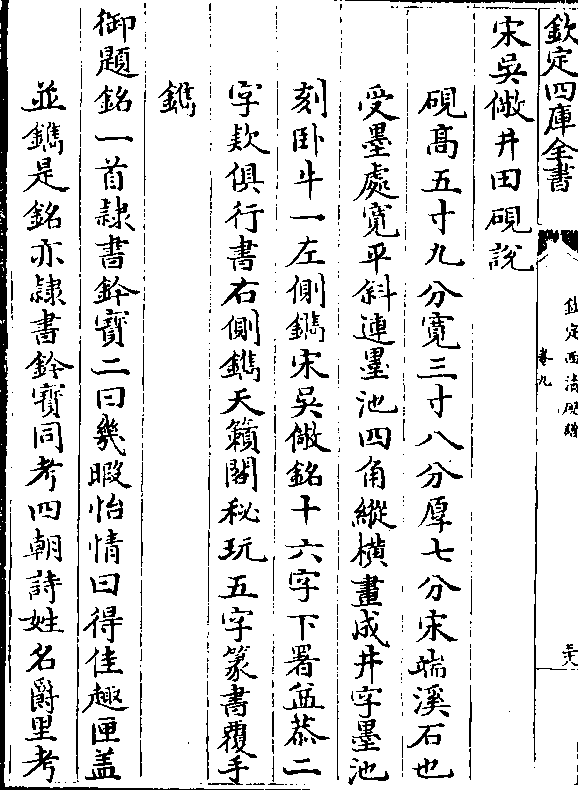 欽定四庫全書
欽定西清硯譜
卷九
宋吳儆井田硯說
硯高五寸九分寬三寸八分厚七分宋端溪石也
受墨處寬平斜連墨池四角縱橫畫成井字墨池
刻卧牛一左側鐫宋吳儆銘十六字下署益恭二
字欵俱行書右側鐫天籟閣秘玩五字篆書覆手
鐫
御題銘一首隸書鈐寶二曰㡬暇怡情曰得佳趣匣盖
並鐫是銘亦隸書鈐寳同考四朝詩姓名爵里考